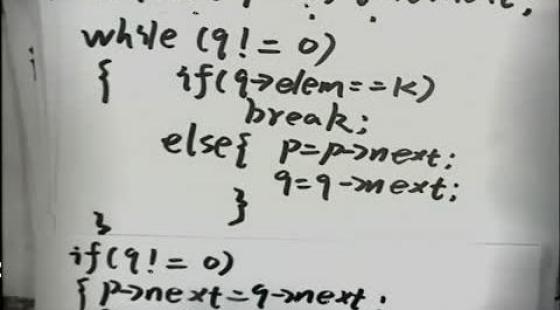 while (q! = 0)
{ if(q->elem==k)
break;
else{ p=p->next;
q=q->next;
}
}
if(q! = 0)
{ p->next=q->next;